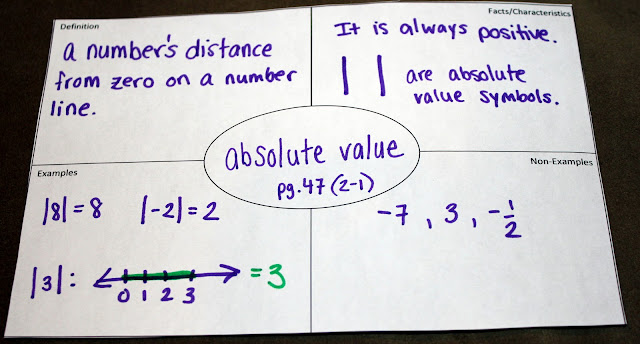 Definition
a number's distance
from zero on a number
line.
Facts/Characteristics
It is always positive.
| | are absolute
value symbols.
absolute value
pg. 47 (2-1)
Examples
|8| = 8 |-2| = 2
|3|: = 3
0 1 2 3
Non-Examples
-7, 3, -1/2